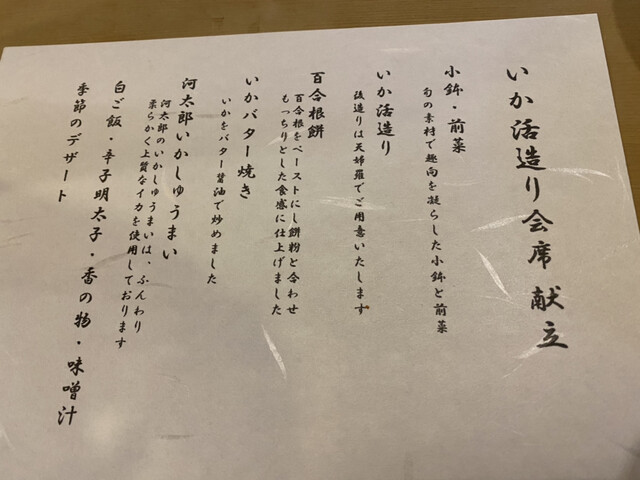 いか活造り会席 献立
小鉢・前菜
旬の素材で趣向を凝らした小鉢と前菜
いか活造り
後造りは天婦羅でご用意いたします
百合根餅
百合根をペーストにし餅粉と合わせ
もっちりとした食感に仕上げました
いかバター焼き
いかをバター醤油で炒めました
河太郎いかしゅうまい
河太郎のいかしゅうまいは、ふんわり
柔らかく上質なイカを使用しております
白ご飯・辛子明太子・香の物・味噌汁
季節のデザート